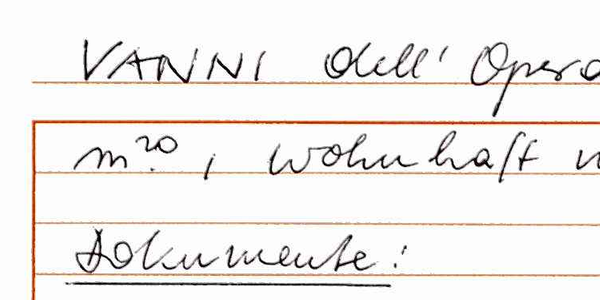 VANNI dell' Opera
m.20, wohnhaft
Dokumente: